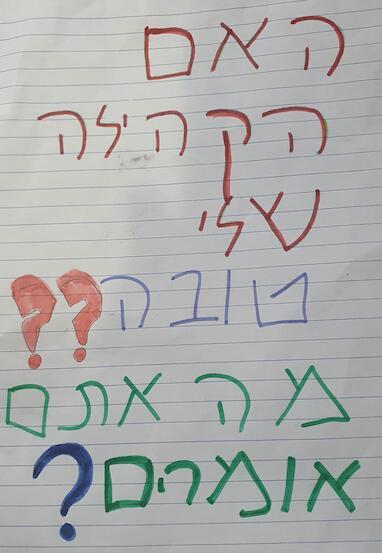 האם
הקהילה
שלי
טובה??
מה אתם
אומרים?